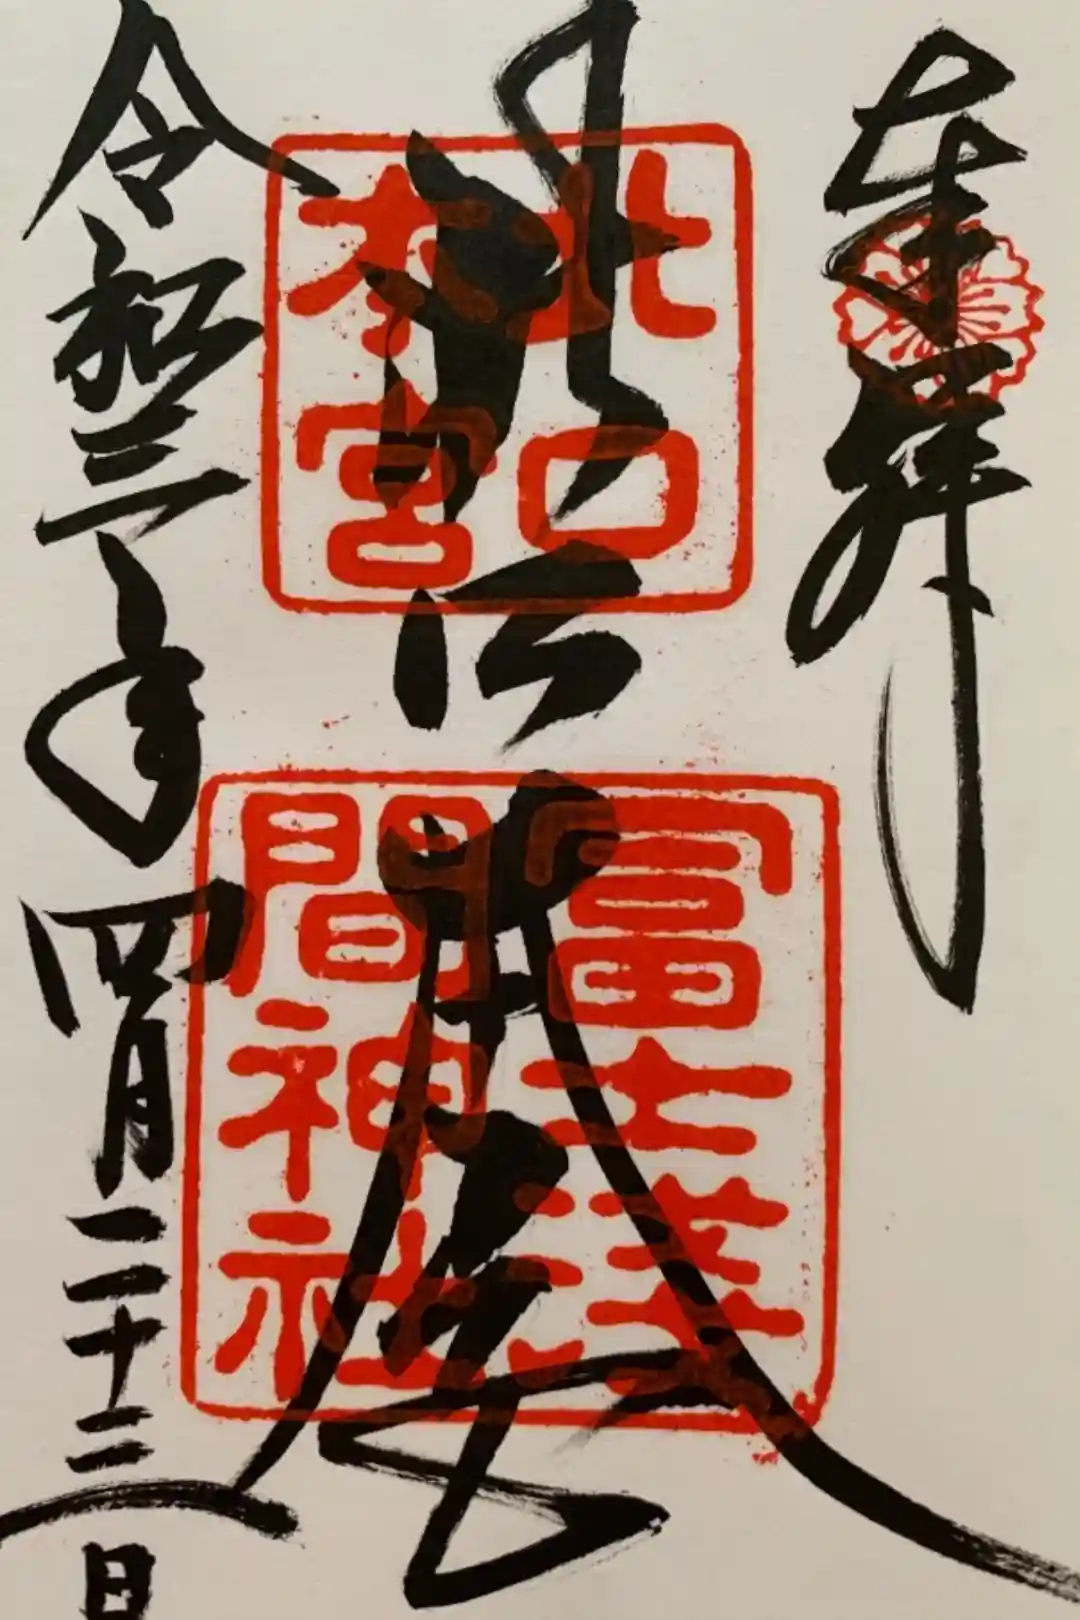 奉拝
北口
本宮
冨士浅
間神社
令和三年四月二十三日